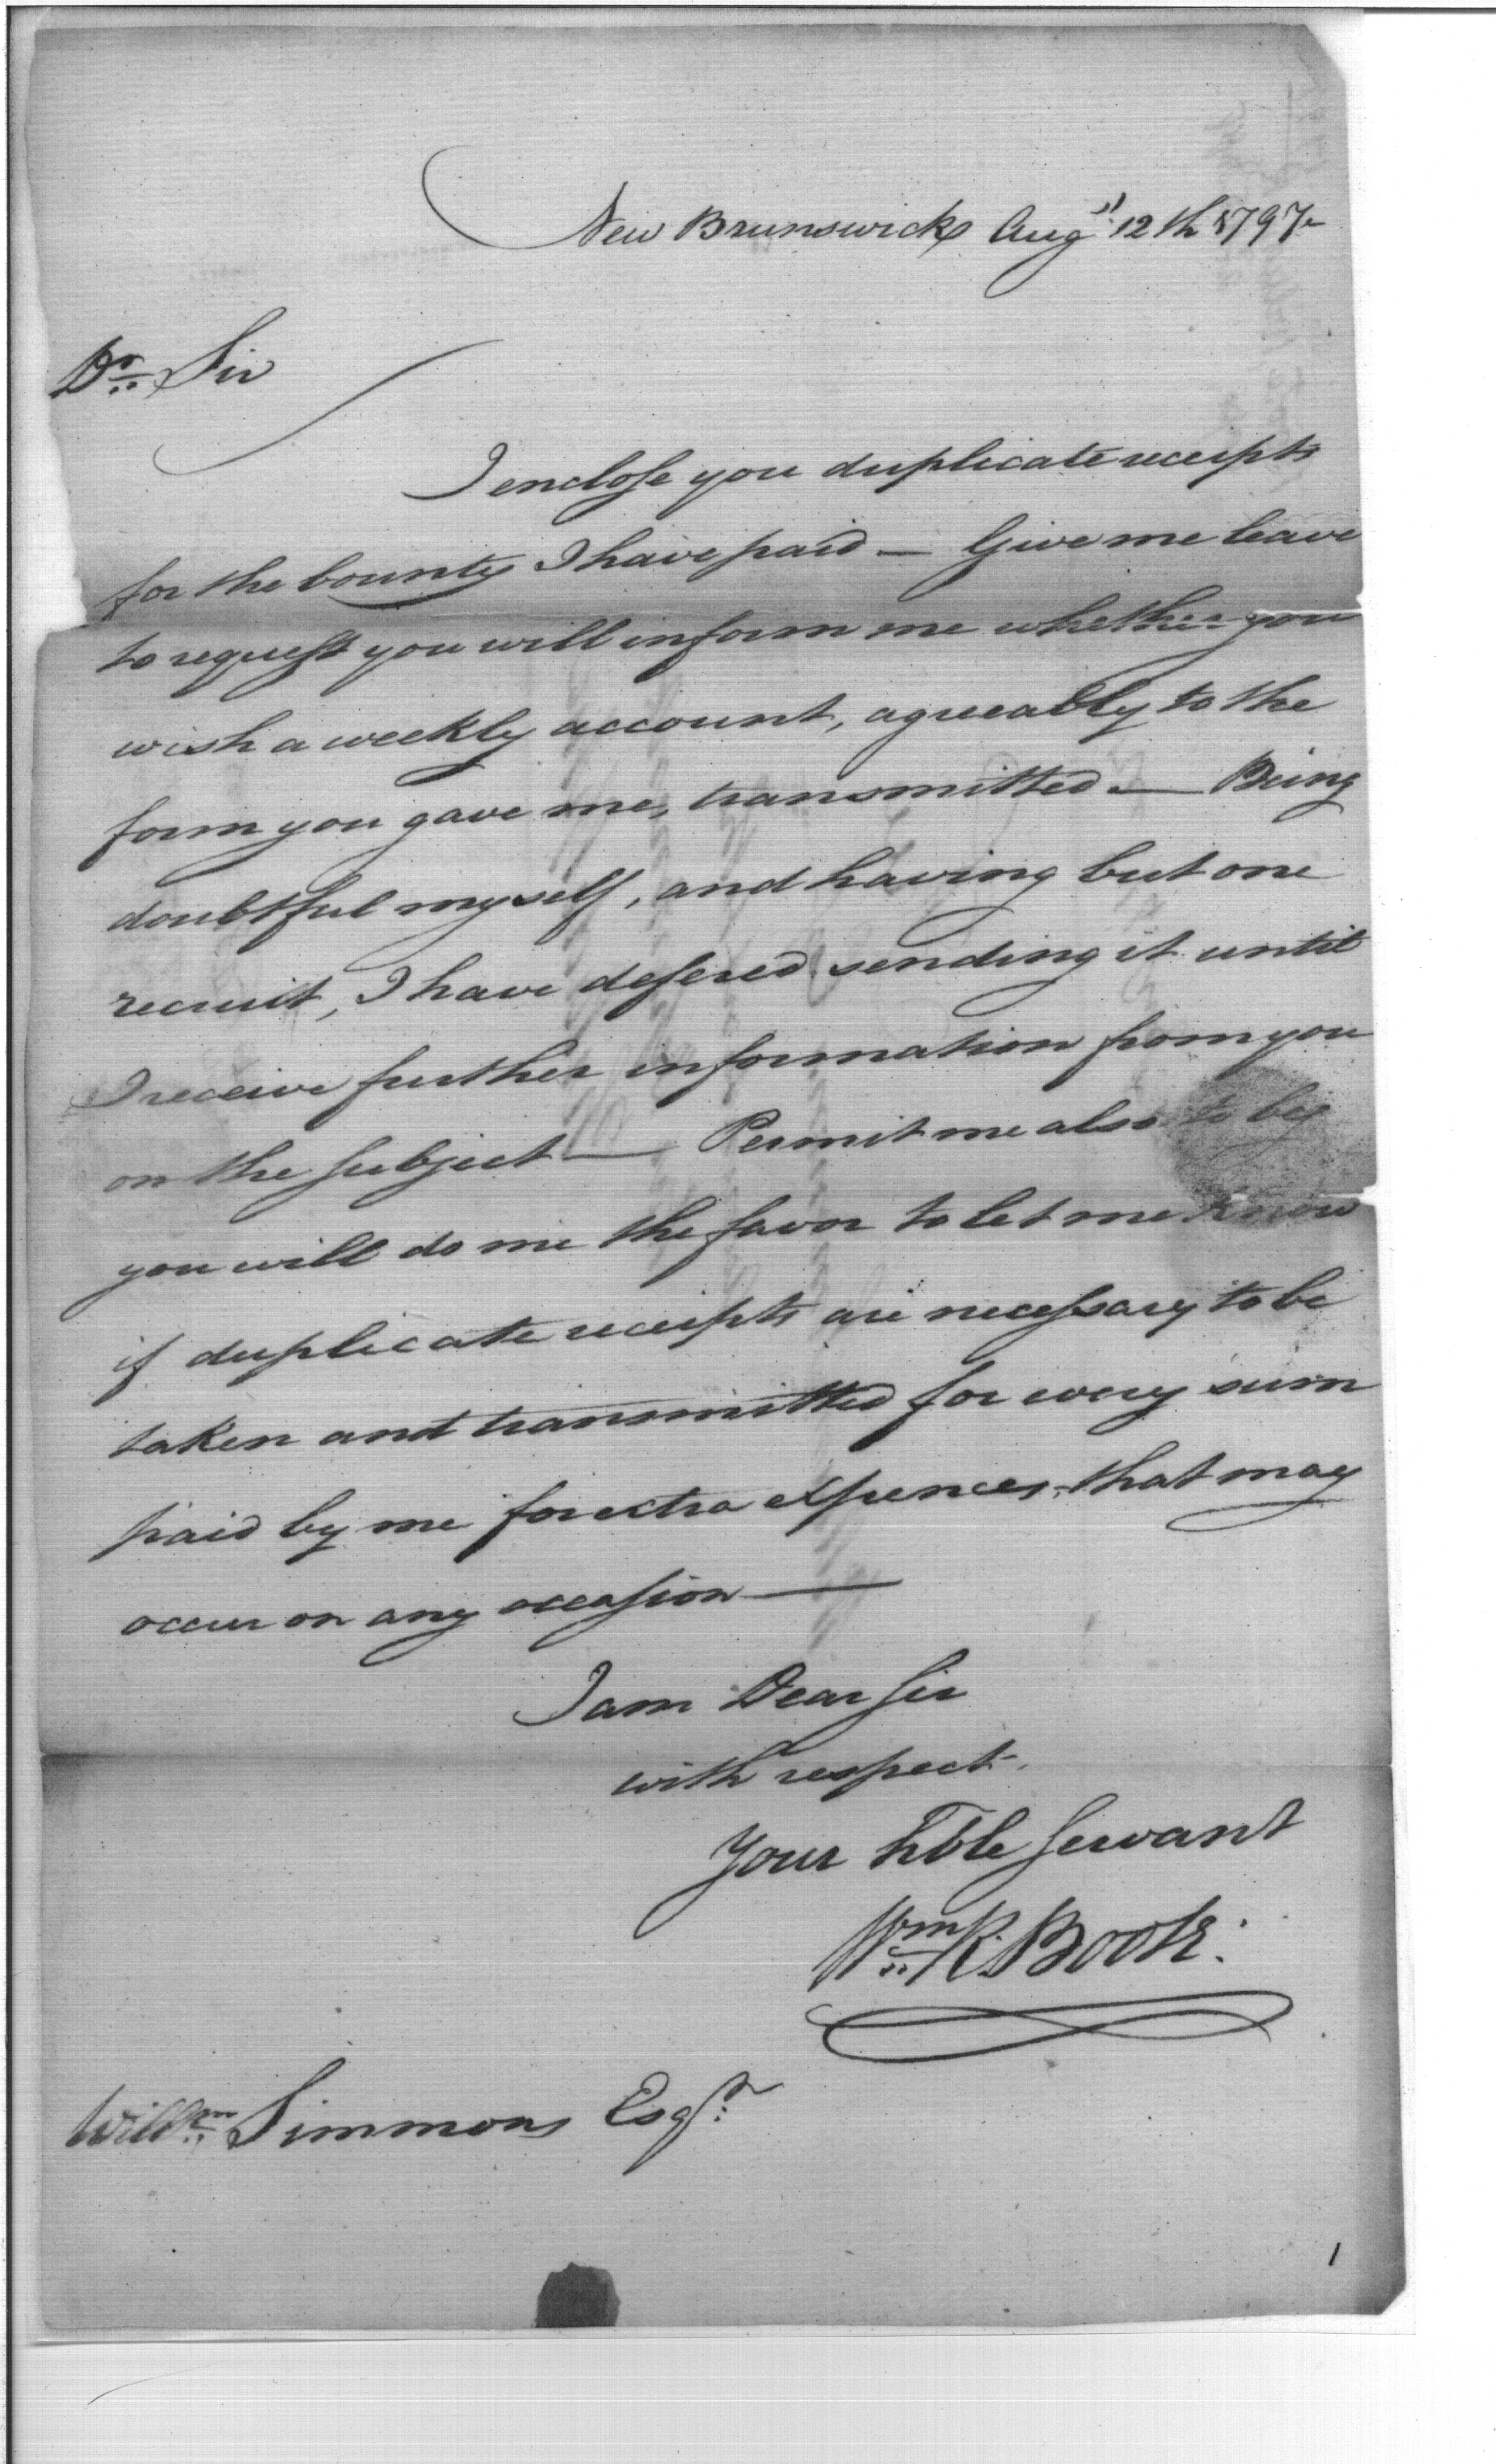 New Brunswick Augst 12th 1797
Dr Sir
I enclose you duplicate receipts
for the bounty I have paid — Give me leave
to request you will inform me whether you
wish a weekly account, agreeably to the
form you gave me, transmitted — Being
doubtful myself, and having but one
recruit, I have defered sending it until
I receive further information from you
on the subject — Permit me also to beg
you will do me the favor to let me know
if duplicate receipts are necessary to be
taken and transmitted for every sum
paid by me for extra expences that may
occur on any occasion —
I am Dear Sir
with respect.
Your hble servant
Wm R. Boote.
Willm Simmons Esqr
1